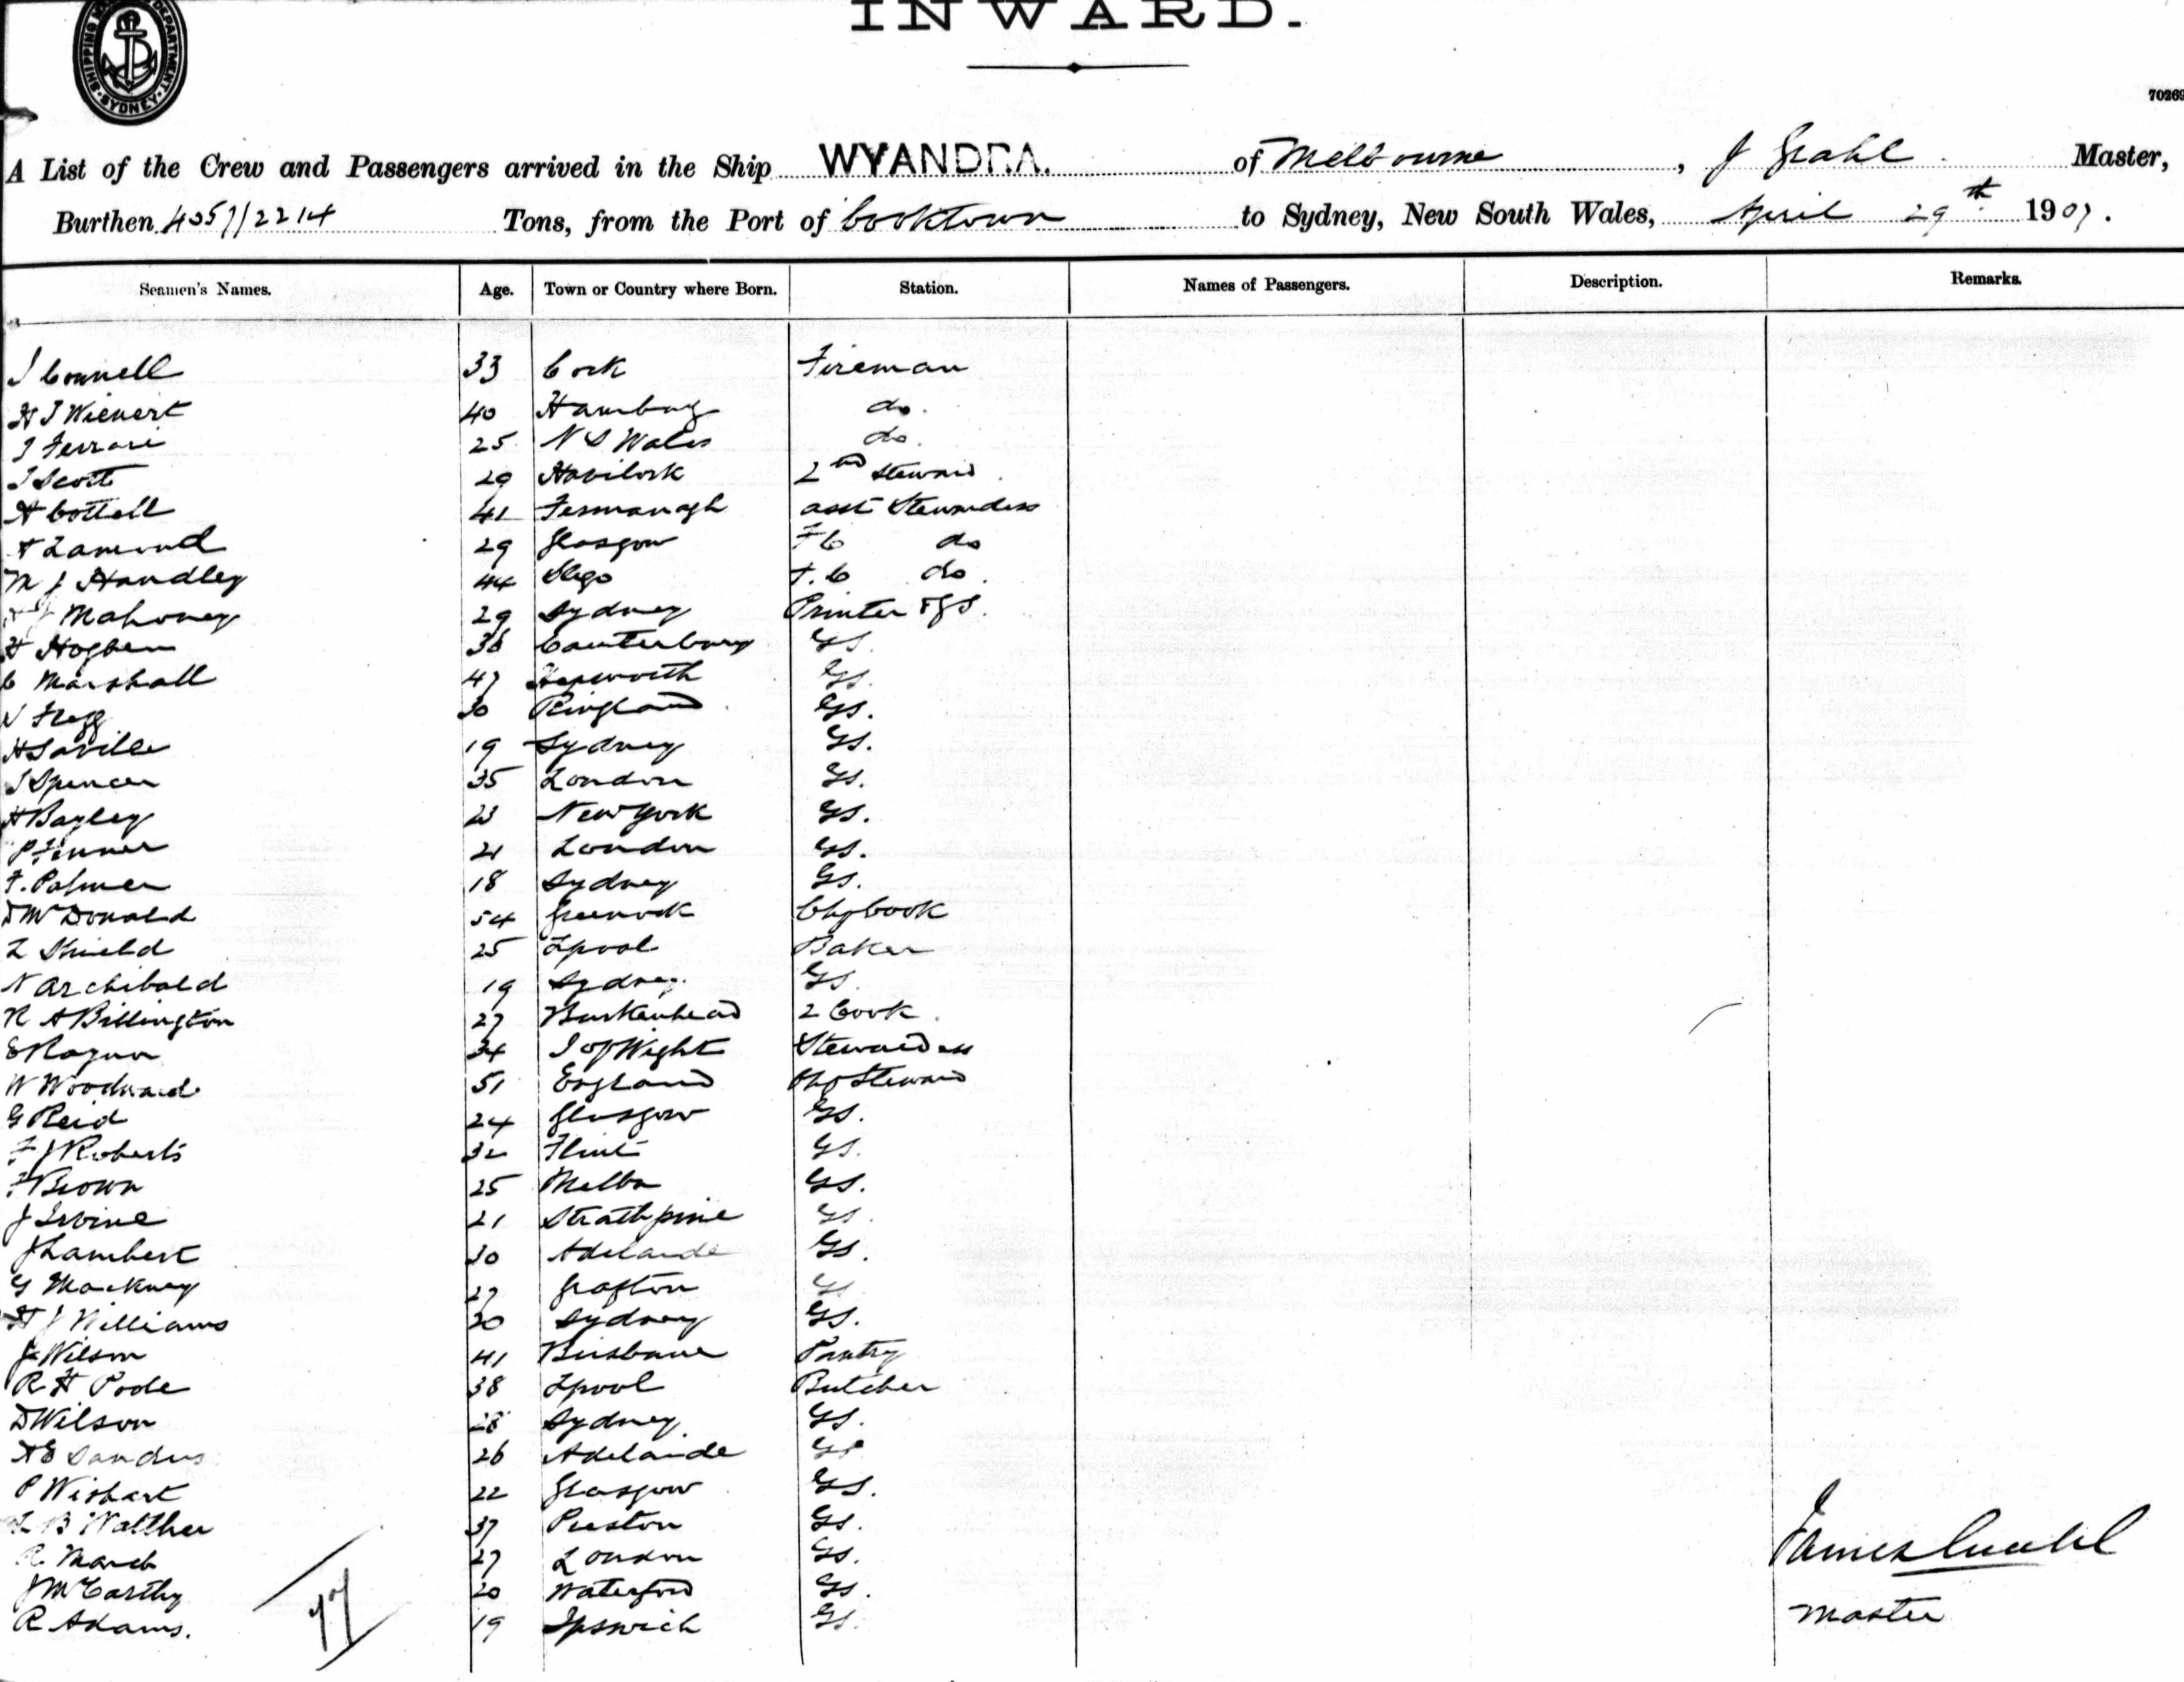 INWARD.
SHIPPING DEPARTMENT. SYDNEY.
7026
A List of the Crew and Passengers arrived in the Ship WYANDRA. of Melbourne, J Master,
Burthen 4057//2214 Tons, from the Port of Cooktown to Sydney, New South Wales, April 29th 1907.
Seamen's Names. Age. Town or Country where Born. Station. Names of Passengers. Description. Remarks.
J Connell 33 Cork Fireman
H J Wienert 40 Hamburg do.
J Ferrari 25 N S Wales do.
J Scott 29 Havilock 2nd Steward
A Cottell 41 Fermanagh asst Stewardess
A Lamond 29 Glasgow FC do
M J Handley 44 Sligo F.C do.
J Mahoney 29 Sydney Printer & GS.
H Hogben 36 Canterbury GS.
C Marshall 47 GS.
Flegg 30 Ringland GS.
H Saville 19 Sydney GS.
J Spencer 35 London GS.
H Bayley 23 New York GS.
P Finner 21 London GS.
F. Palmer 18 Sydney GS.
D McDonald 54 Greenock Chf Cook
L Shield 25 Lpool Baker
N Archibald 19 Sydney. GS.
R A Billington 27 Birkenhead 2 Cook.
E 34 I of Wight Stewardess
W Woodward 51 England Chf Steward
G Reid 24 Glasgow GS.
F J Roberts 32 Flint GS.
F Brown 25 Melbn GS.
J Irvine 21 Strathpine GS.
J Lambert 30 Adelaide GS.
G Mackney 27 Grafton GS
H J Williams 20 Sydney GS.
J Wilson 41 Brisbane Pantry
R H Poole 38 Lpool Butcher
D Wilson 28 Sydney. GS.
A E Sanders 26 Adelaide GS
P Wishart 22 Glasgow GS.
L B Walther 37 Preston GS.
R March 27 London GS.
J McCarthy 20 Waterford GS.
R Adams. 19 Ipswich GS.
77
James
Master